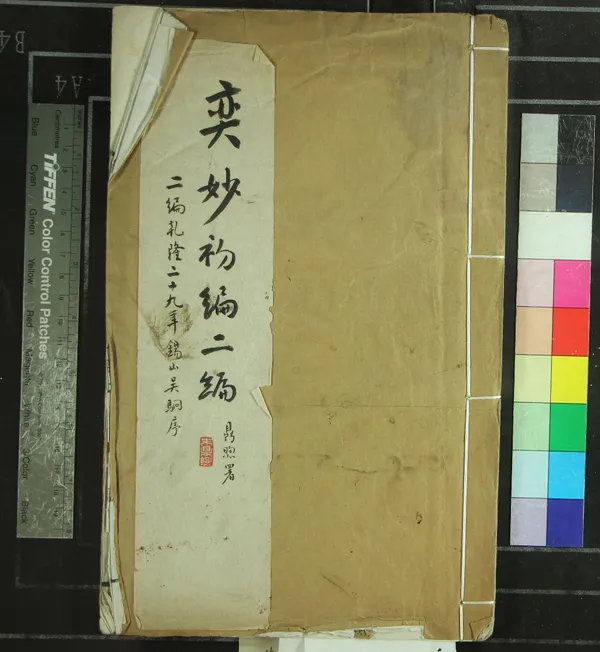 奕妙初編二編
二編乾隆二十九年錫山吴駉序
署
TIFFEN Color Control Patches
Blue
Cyan
Green
Yellow
Red
Magenta
White
3/Color
Black
Centimetres
A4
B4